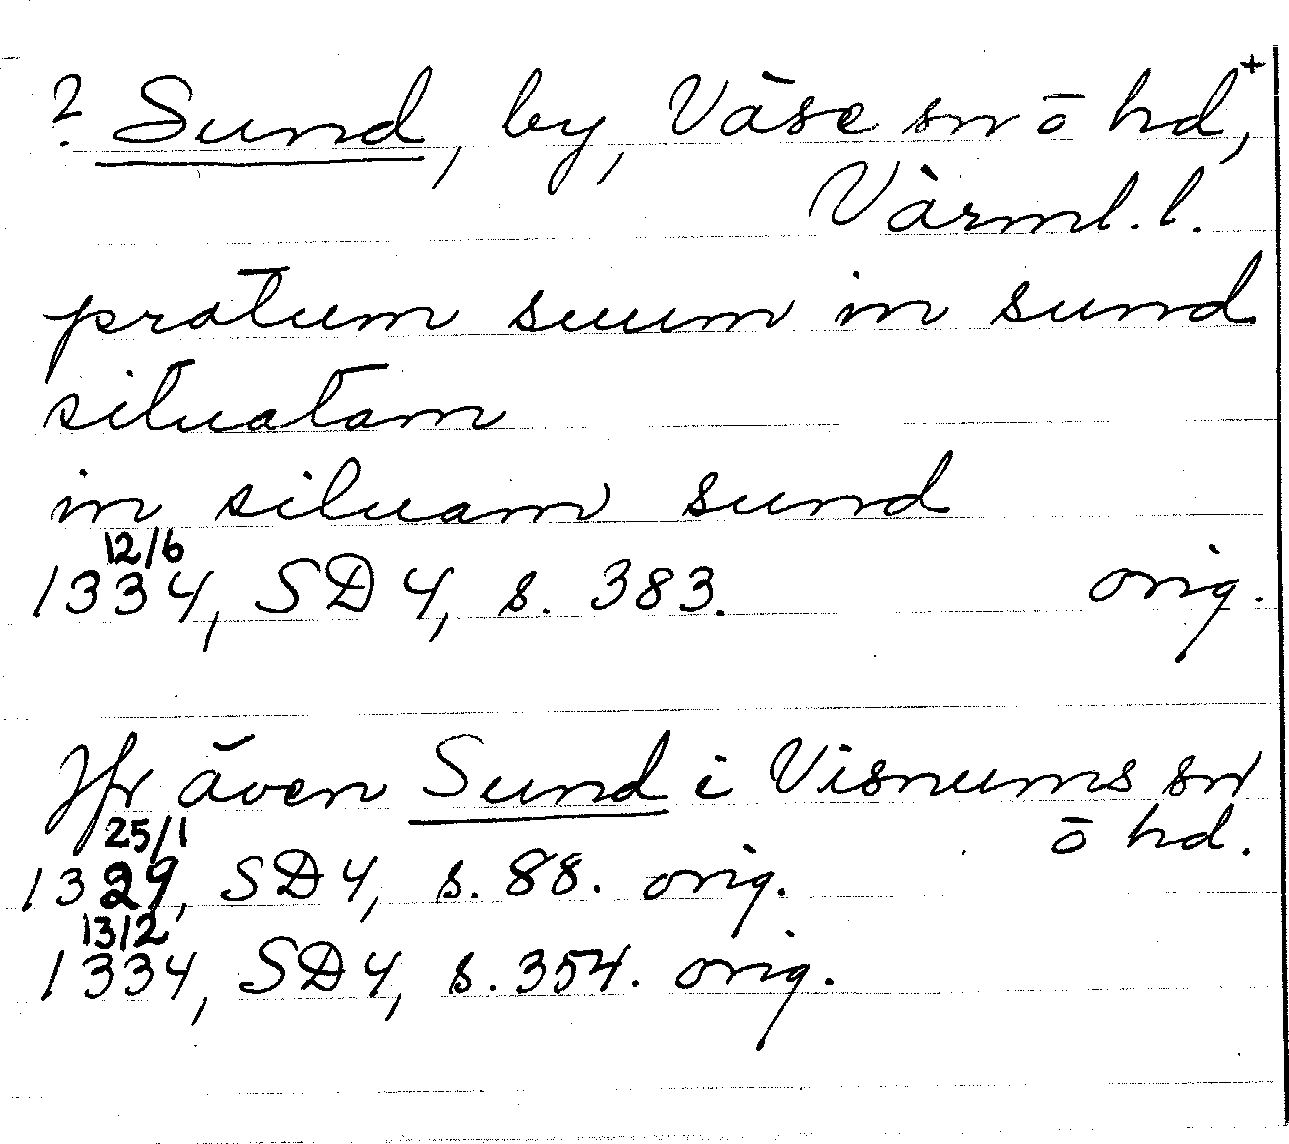 ? Sund, by, Väse sn o hd, +
Värml. l.
pratum suum in sund
situatam
in siluam sund
12/6
1334, SD 4, s. 383. orig.
Jfr även Sund i Visnums sn
o hd.
25/1
1329, SD 4, s. 88. orig.
13/2
1334, SD 4, s. 354. orig.